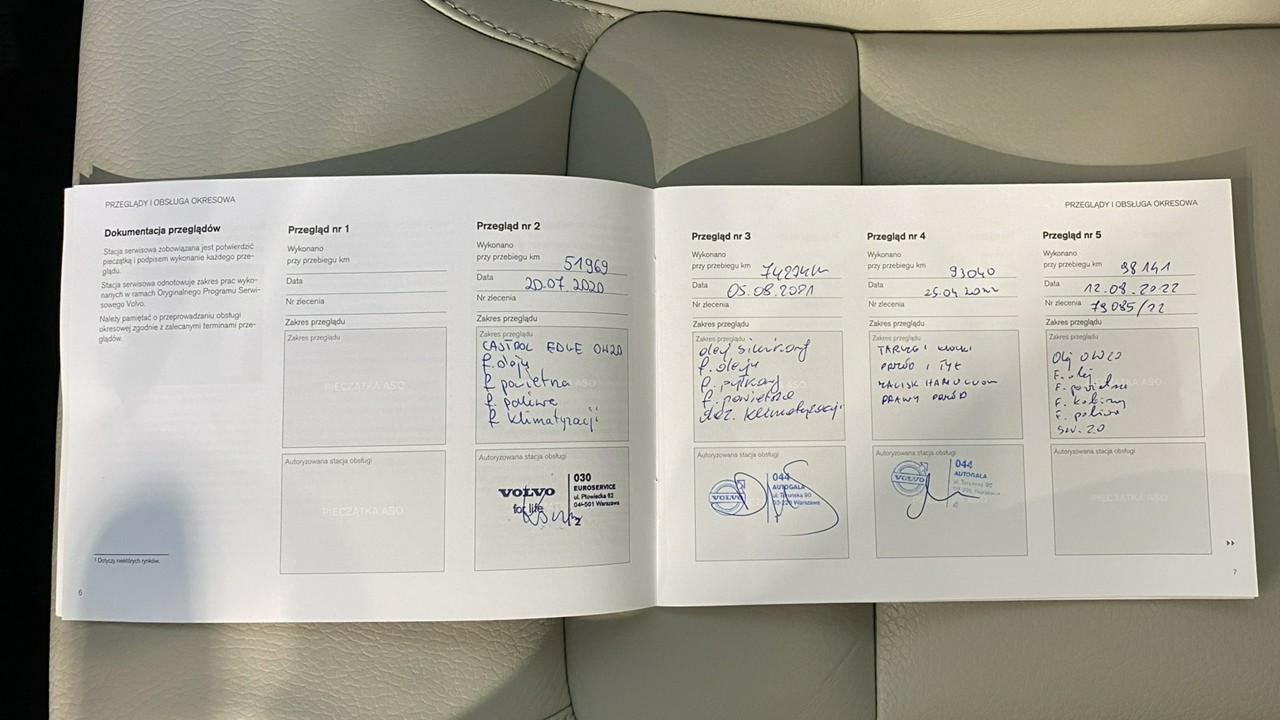 PRZEGLĄDY I OBSŁUGA OKRESOWA
Dokumentacja przeglądów
Stacja serwisowa zobowiązana jest potwierdzić
pieczątką i podpisem wykonanie każdego prze-
glądu.
Stacja serwisowa odnotowuje zakres prac wyko-
nanych w ramach Oryginalnego Programu Serwi-
sowego Volvo.
Należy pamiętać o przeprowadzaniu obsługi
okresowej zgodnie z zalecanymi terminami prze-
glądów.
1 Dotyczy niektórych rynków.
6
Przegląd nr 1
Wykonano
przy przebiegu km
Data
Nr zlecenia
Zakres przeglądu
Zakres przeglądu
PIECZĄTKA ASO
Autoryzowana stacja obsługi
PIECZĄTKA ASO
Przegląd nr 2
Wykonano
przy przebiegu km 51969
Data 20.07.2020
Nr zlecenia
Zakres przeglądu
Zakres przeglądu
CASTROL EDGE 0W20
f. oleju
f. powietrza
f. paliwa
f. klimatyzacji
Autoryzowana stacja obsługi
VOLVO
for life
030
EUROSERVICE
ul. Płowiecka 62
04-501 Warszawa
PRZEGLĄDY I OBSŁUGA OKRESOWA
Przegląd nr 3
Wykonano
przy przebiegu km
Data 05.08.2021
Nr zlecenia
Zakres przeglądu
Zakres przeglądu
olej silnikowy
f. oleju
f. pyłkowy
f. powietrza
klimatyzacji
Autoryzowana stacja obsługi
VOLVO
044
AUTOGALA
ul. Toruńska 90
03-226 Warszawa
Przegląd nr 4
Wykonano
przy przebiegu km 93040
Data 25.04.2022
Nr zlecenia
Zakres przeglądu
Zakres przeglądu
TARCZE I KLOCKI
PRZÓD I TYŁ
ZACISK HAMULCOWY
PRAWY PRZÓD
Autoryzowana stacja obsługi
VOLVO
044
AUTOGALA
ul. Toruńska 90
03-226 Warszawa
Przegląd nr 5
Wykonano
przy przebiegu km 98141
Data 12.08.2022
Nr zlecenia 79085/22
Zakres przeglądu
Zakres przeglądu
Olej 0W20
F. olej
F. powietrza
F. kabiny
F. paliwa
Autoryzowana stacja obsługi
PIECZĄTKA ASO
7